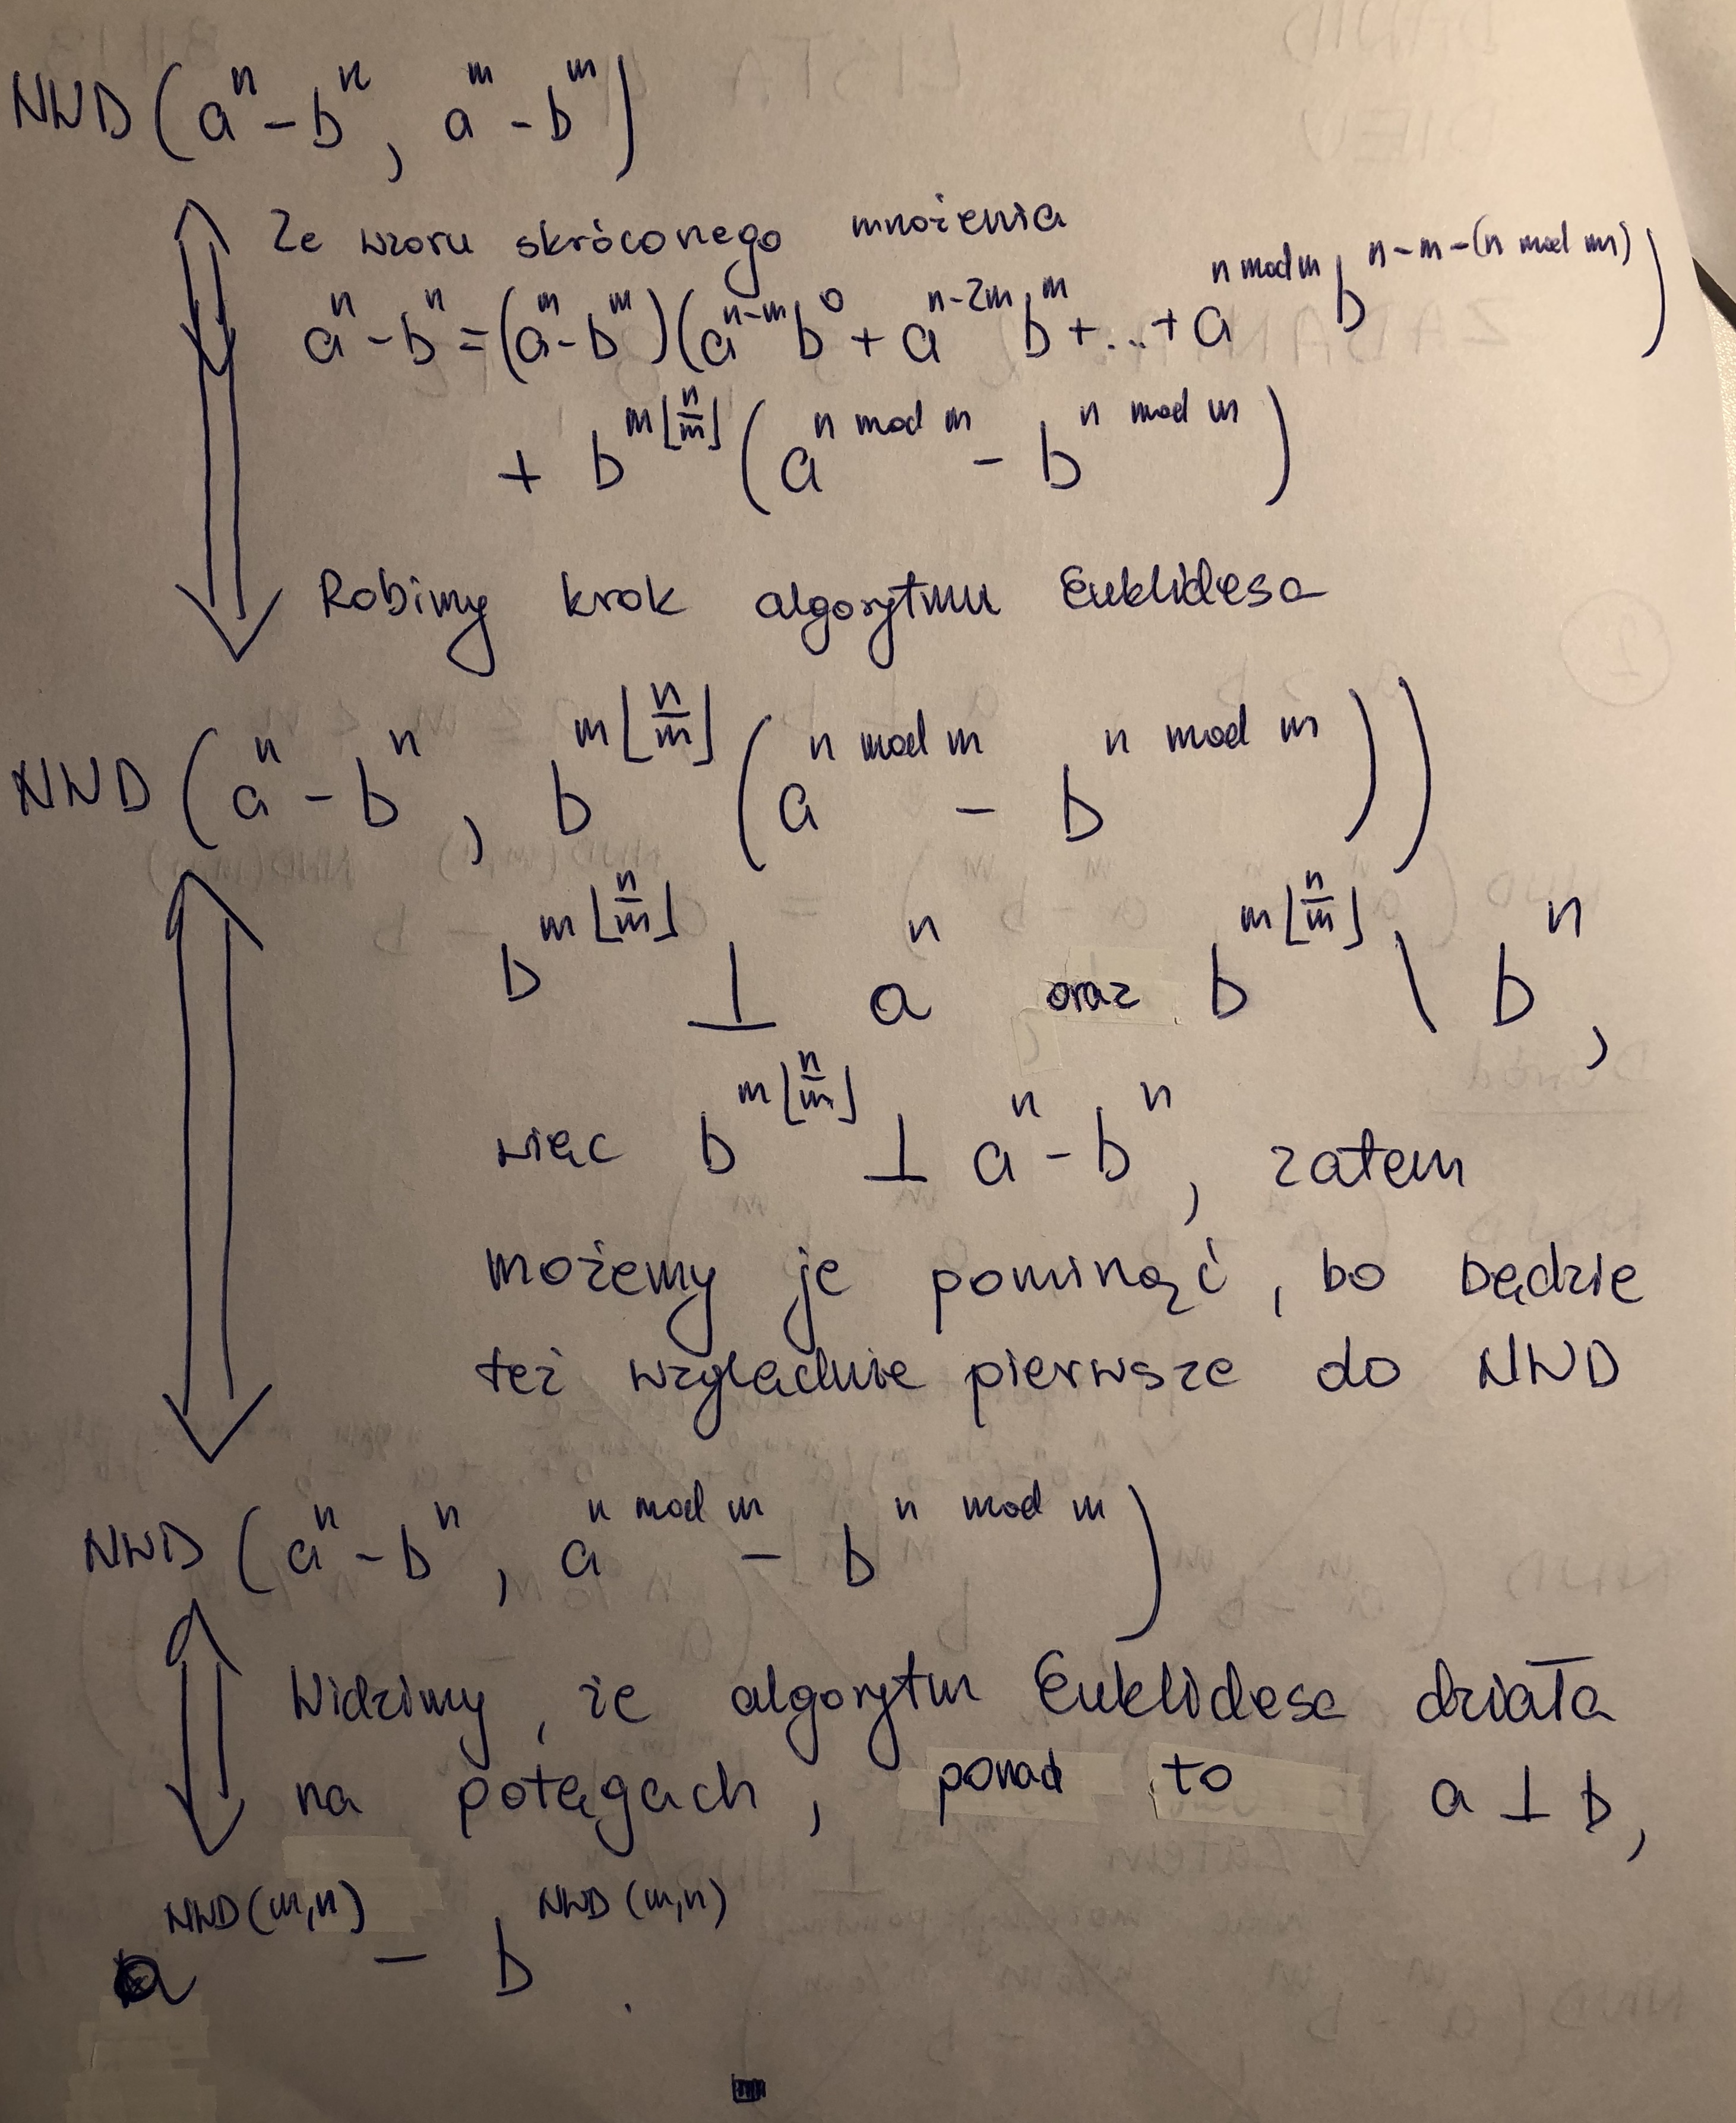 NWD (aⁿ - bⁿ, aᵐ - bᵐ)
Ze wzoru skróconego mnożenia
aⁿ - bⁿ = (aᵐ - bᵐ)(a^{n-m} b⁰ + a^{n-2m} bᵐ + ... + a^{n mod m} b^{n-m-(n mod m)})
+ b^{m⌊n/m⌋} (a^{n mod m} - b^{n mod m})
Robimy krok algorytmu Euklidesa
NWD (aⁿ - bⁿ, b^{m⌊n/m⌋} (a^{n mod m} - b^{n mod m}))
b^{m⌊n/m⌋} ⊥ aⁿ oraz b^{m⌊n/m⌋} \ bⁿ,
więc b^{m⌊n/m⌋} ⊥ aⁿ - bⁿ, zatem
możemy je pominąć, bo będzie
też względnie pierwsze do NWD
NWD (aⁿ - bⁿ, a^{n mod m} - b^{n mod m})
Widzimy, że algorytm Euklidesa działa
na potęgach, ponad to a ⊥ b,
a^{NWD(m,n)} - b^{NWD(m,n)}.